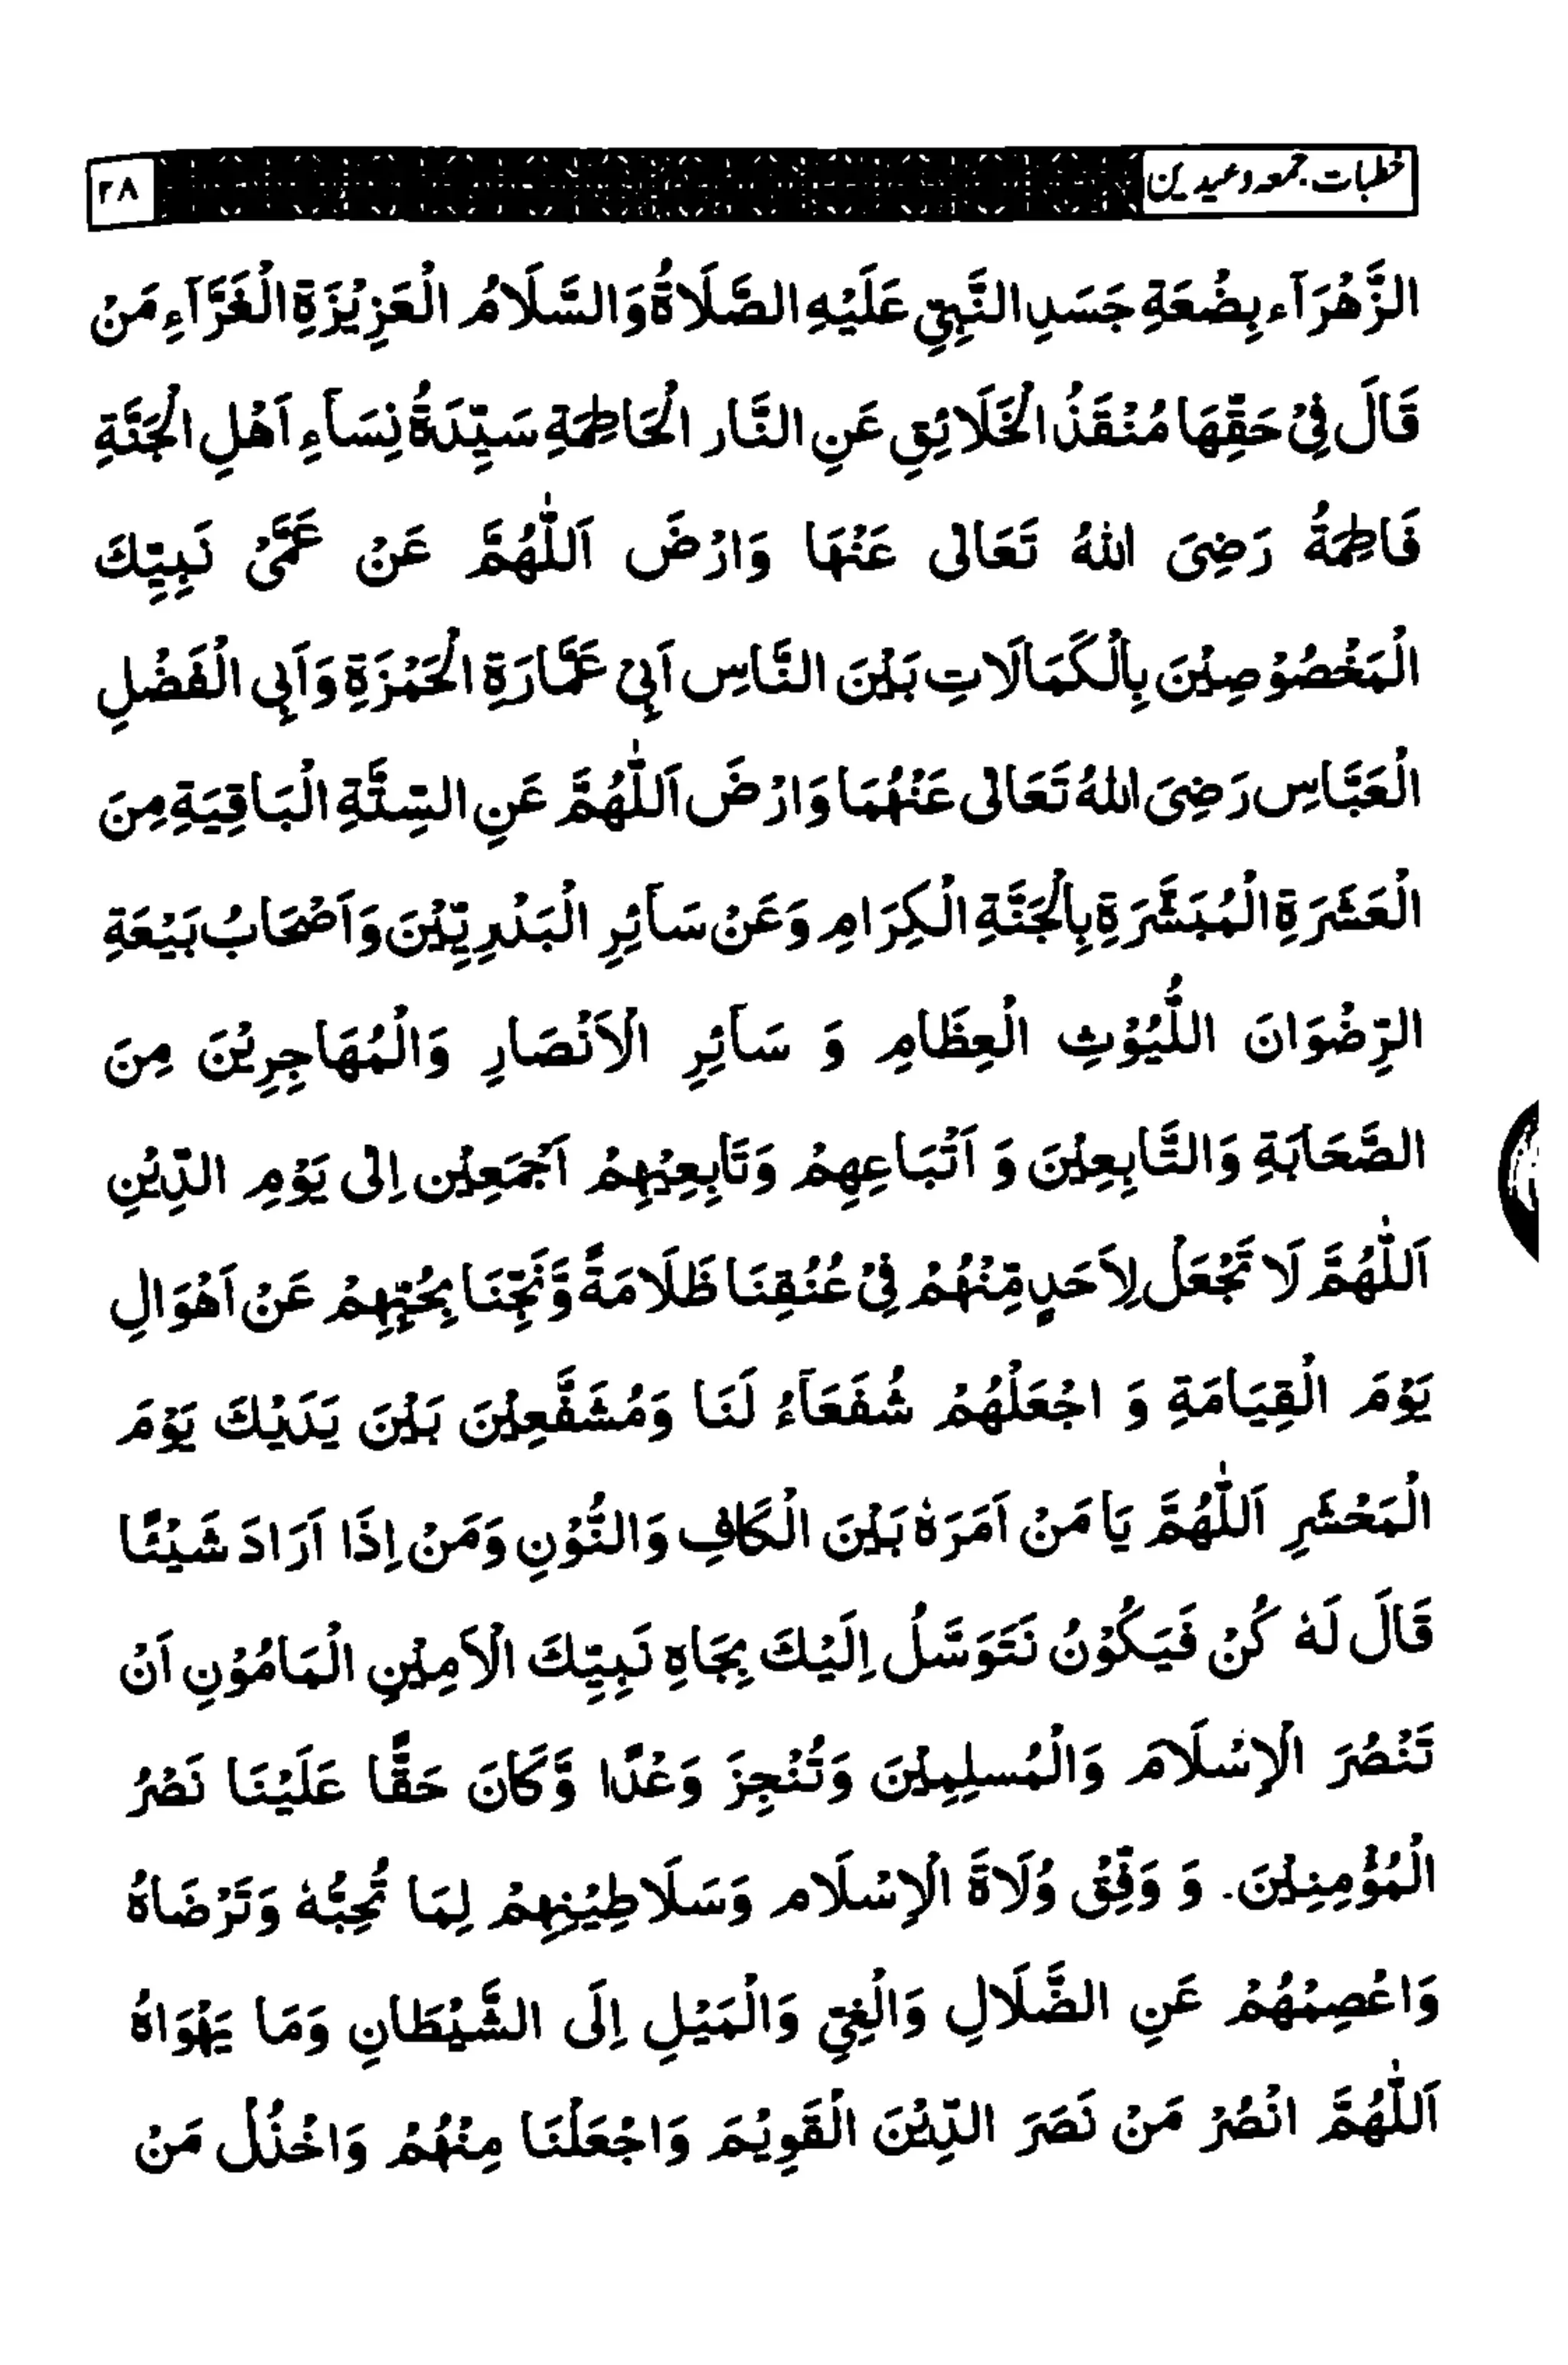 خطبات جمعہ وعیدین
۲۸
الزَّهْرَآء بِضْعَةِ جَسَدِ النَّبِيِّ عَلَيْهِ الصَّلَاةُ وَالسَّلَامُ الْعَزِيْزَةِ الْغَرَّآءِ مَنْ
قَالَ فِيْ حَقِّهَا مُنْقَذُ الْخَلَائِقِ عَنِ النَّار الْحَاطِمَةِ سَيِّدَةُ نِسَآءِ اَهْلِ الْجَنَّةِ
فَاطِمَةُ رَضِیَ اللهُ تَعَالٰی عَنْهَا وَارْضَ اَللّٰهُمَّ عَنْ عَمَّیْ نَبِيِّكَ
الْمَخْصُوْصِيْنَ بِالْكَمَالَاتِ بَيْنَ النَّاسِ اَبِیْ عَمَّارَةِ الْحَمْزَةِ وَاَبِی الْفَضْلِ
الْعَبَّاسِ رَضِیَ اللهُ تَعَالٰی عَنْهُمَا وَارْضَ اَللّٰهُمَّ عَنِ السِّتَّةِ الْبَاقِيَةِ مِنَ
الْعَشَرَةِ الْمُبَشَّرَةِ بِالْجَنَّةِ الْكِرَامِ وَعَنْ سَآئِرِ الْبَدْرِيِّيْنَ وَاَصْحَابُ بَيْعَةِ
الرِّضْوَانَ اللُّيُوْثِ الْعِظَامِ وَ سَآئِرِ الْاَنْصَارِ وَالْمُهَاجِرِيْنَ مِنَ
الصَّحَابَةِ وَالتَّابِعِيْنَ وَ اَتْبَاعِهِمْ وَتَابِعِيْهِمْ اَجْمَعِيْن اِلٰی يَوْمِ الدِّيْنِ
اَللّٰهُمَّ لَا تَجْعَلْ لِاَحَدٍ مِّنْهُمْ فِیْ عُنُقِنَا ظَلَامَةً وَّنَجِّنَا بِحُبِّهِمْ عَنْ اَهْوَالِ
يَوْمَ الْقِيَامَةِ وَ اجْعَلْهُمْ شُفَعَآءُ لَنَا وَمُشَفَّعِيْنَ بَيْنَ يَدَيْكَ يَوْمَ
الْمَحْشَرِ اَللّٰهُمَّ يَا مَنْ اَمَرَهٗ بَيْنَ الْكَافِ وَالنُّوْنِ وَمَنْ اِذَا اَرَادَ شَيْئًا
قَالَ لَهٗ كُنْ فَيَكُوْنُ نَتَوَسَّلُ اِلَيْكَ بِجَاهِ نَبِيِّكَ الْاَمِيْنِ الْمَامُوْنِ اَنْ
تَنْصُرَ الْاِسْلَامَ وَالْمُسلِمِيْنَ وَتُنْجِزَ وَعْدًا وَّكَانَ حَقًّا عَلَيْنَا نَصْرُ
الْمُؤْمِنِيْنَ۔ وَ وَفِّقْ وُلَاةَ الْاِسْلَام وَسَلَاطِيْنِهِمْ لِمَا تُحِبُّهٗ وَتَرْضَاهُ
وَاعْصِمْهُمْ عَنِ الضَّلَالِ وَالْغِيِّ وَالْمَيْلِ اِلَی الشَّيْطَانِ وَمَا يَهْوَاهُ
اَللّٰهُمَّ انْصُرْ مَنْ نَصَرَ الدِّيْنَ الْقَوِيْمَ وَاجْعَلْنَا مِنْهُمْ وَاخْذُلْ مَنْ